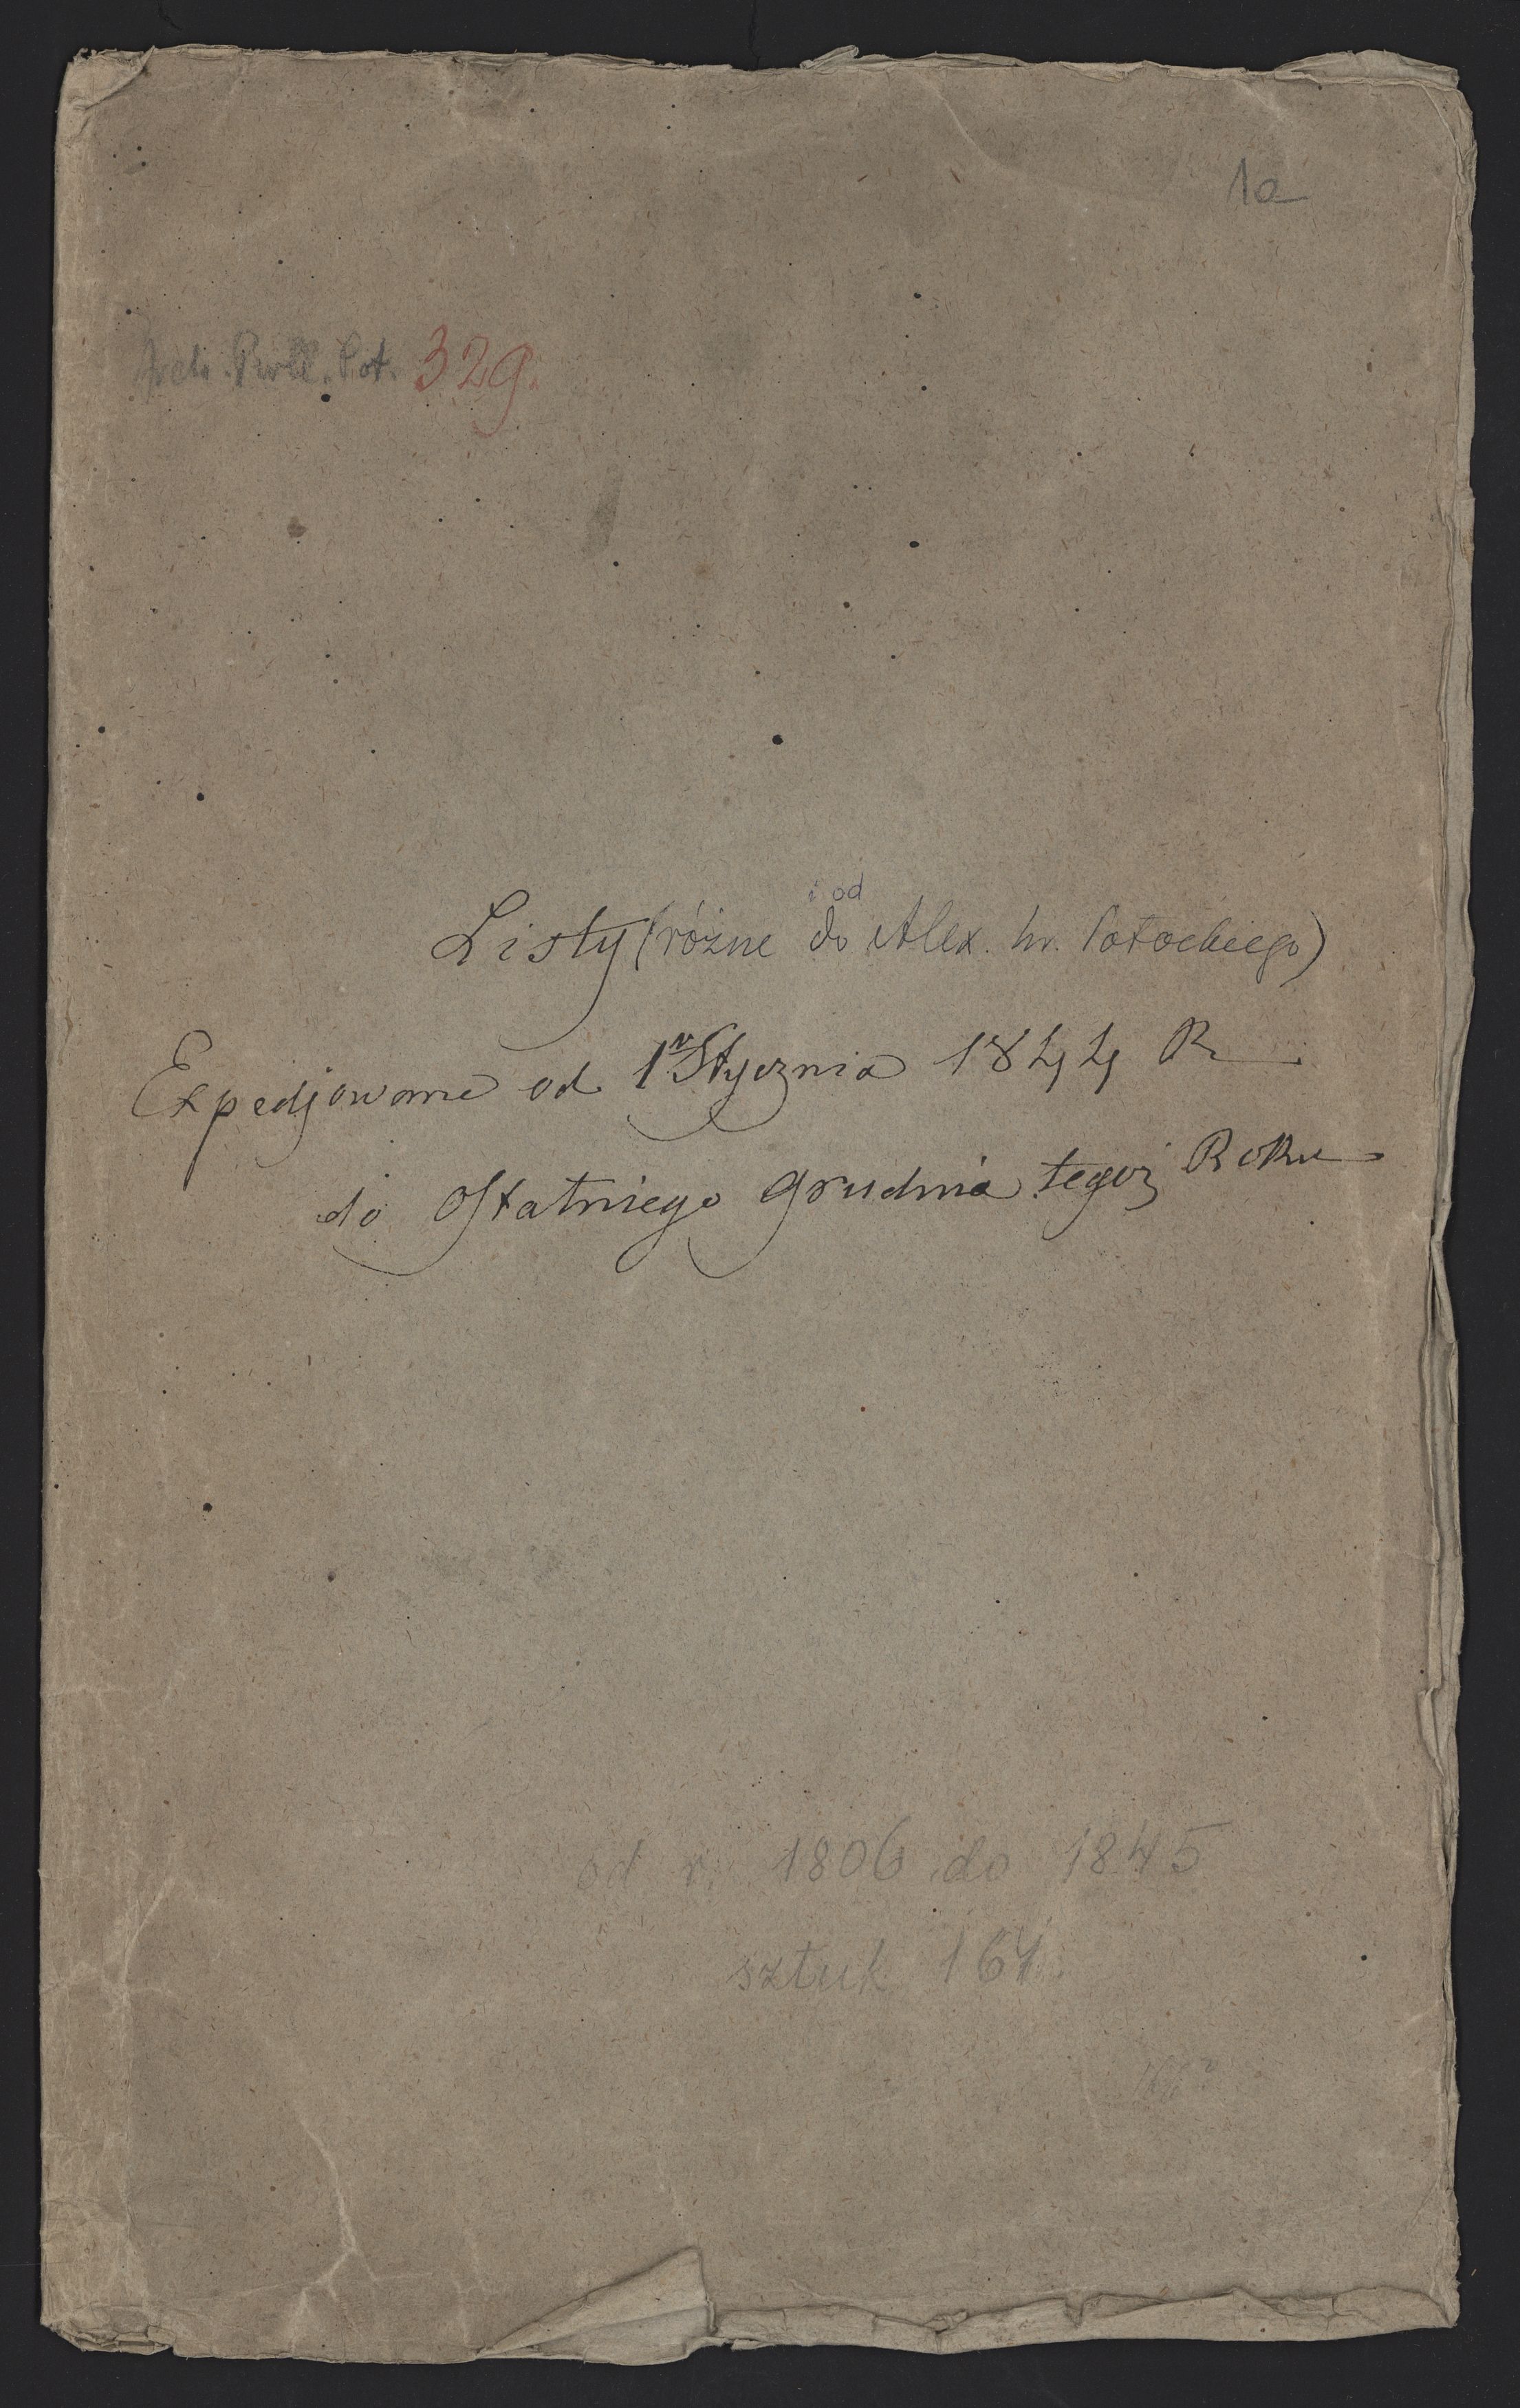 1a
Arch. Publ. Pot. 329.
i od
Listy (różne do Alex. hr. Potockiego)
Expedjowane od 1º Stycznia 1844 R
do Ostatniego Grudnia tegoż Roku
od r. 1806 do 1845
sztuk 164.